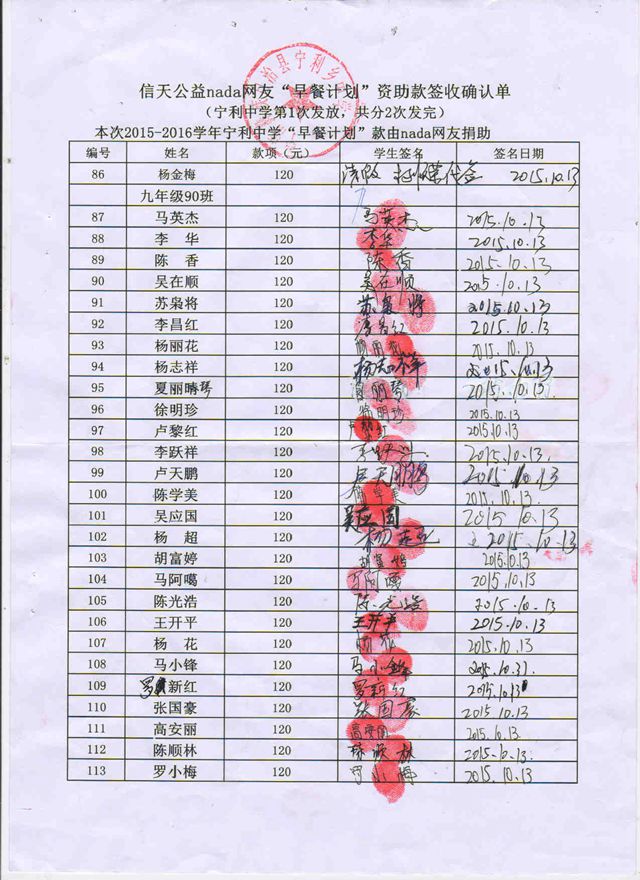 信天公益nada网友“早餐计划”资助款签收确认单
（宁利中学第1次发放，共分2次发完）
本次2015-2016学年宁利中学“早餐计划”款由nada网友捐助
编号 姓名 款项（元） 学生签名 签名日期
86 杨金梅 120 代签 2015.10.13
九年级90班
87 马英杰 120 马英杰 2015.10.13
88 李 华 120 李华 2015.10.13
89 陈 香 120 陈香 2015.10.13
90 吴在顺 120 吴在顺 2015.10.13
91 苏枭将 120 苏枭将 2015.10.13
92 李昌红 120 李昌红 2015.10.13
93 杨丽花 120 2015.10.13
94 杨志祥 120 杨志祥 2015.10.13
95 夏丽琴 120 夏丽琴 2015.10.13
96 徐明珍 120 徐明珍 2015.10.13
97 卢黎红 120 2015.10.13
98 李跃祥 120 2015.10.13
99 卢天鹏 120 卢天鹏 2015.10.13
100 陈学美 120 2015.10.13
101 吴应国 120 吴应国 2015.10.13
102 杨 超 120 杨超 2015.10.13
103 胡富婷 120 胡富婷 2015.10.13
104 马阿噶 120 马阿噶 2015.10.13
105 陈光浩 120 陈光浩 2015.10.13
106 王开平 120 王开平 2015.10.13
107 杨 花 120 杨花 2015.10.13
108 马小锋 120 马小锋 2015.10.13
109 罗新红 120 罗新红 2015.10.13
110 张国豪 120 张国豪 2015.10.13
111 高安丽 120 高安丽 2015.10.13
112 陈顺林 120 陈顺林 2015.10.13
113 罗小梅 120 罗小梅 2015.10.13